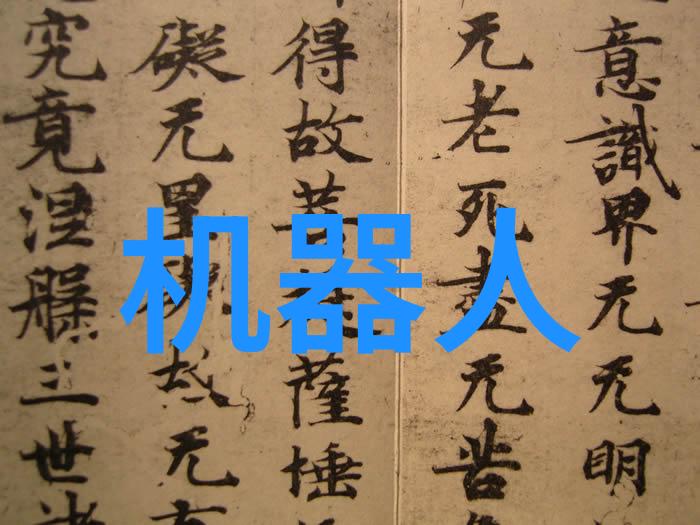 意識界无无明
无老死盡无苦
得故菩提薩埵
礙无罣礙故无有
究竟涅槃三世諸
机器人